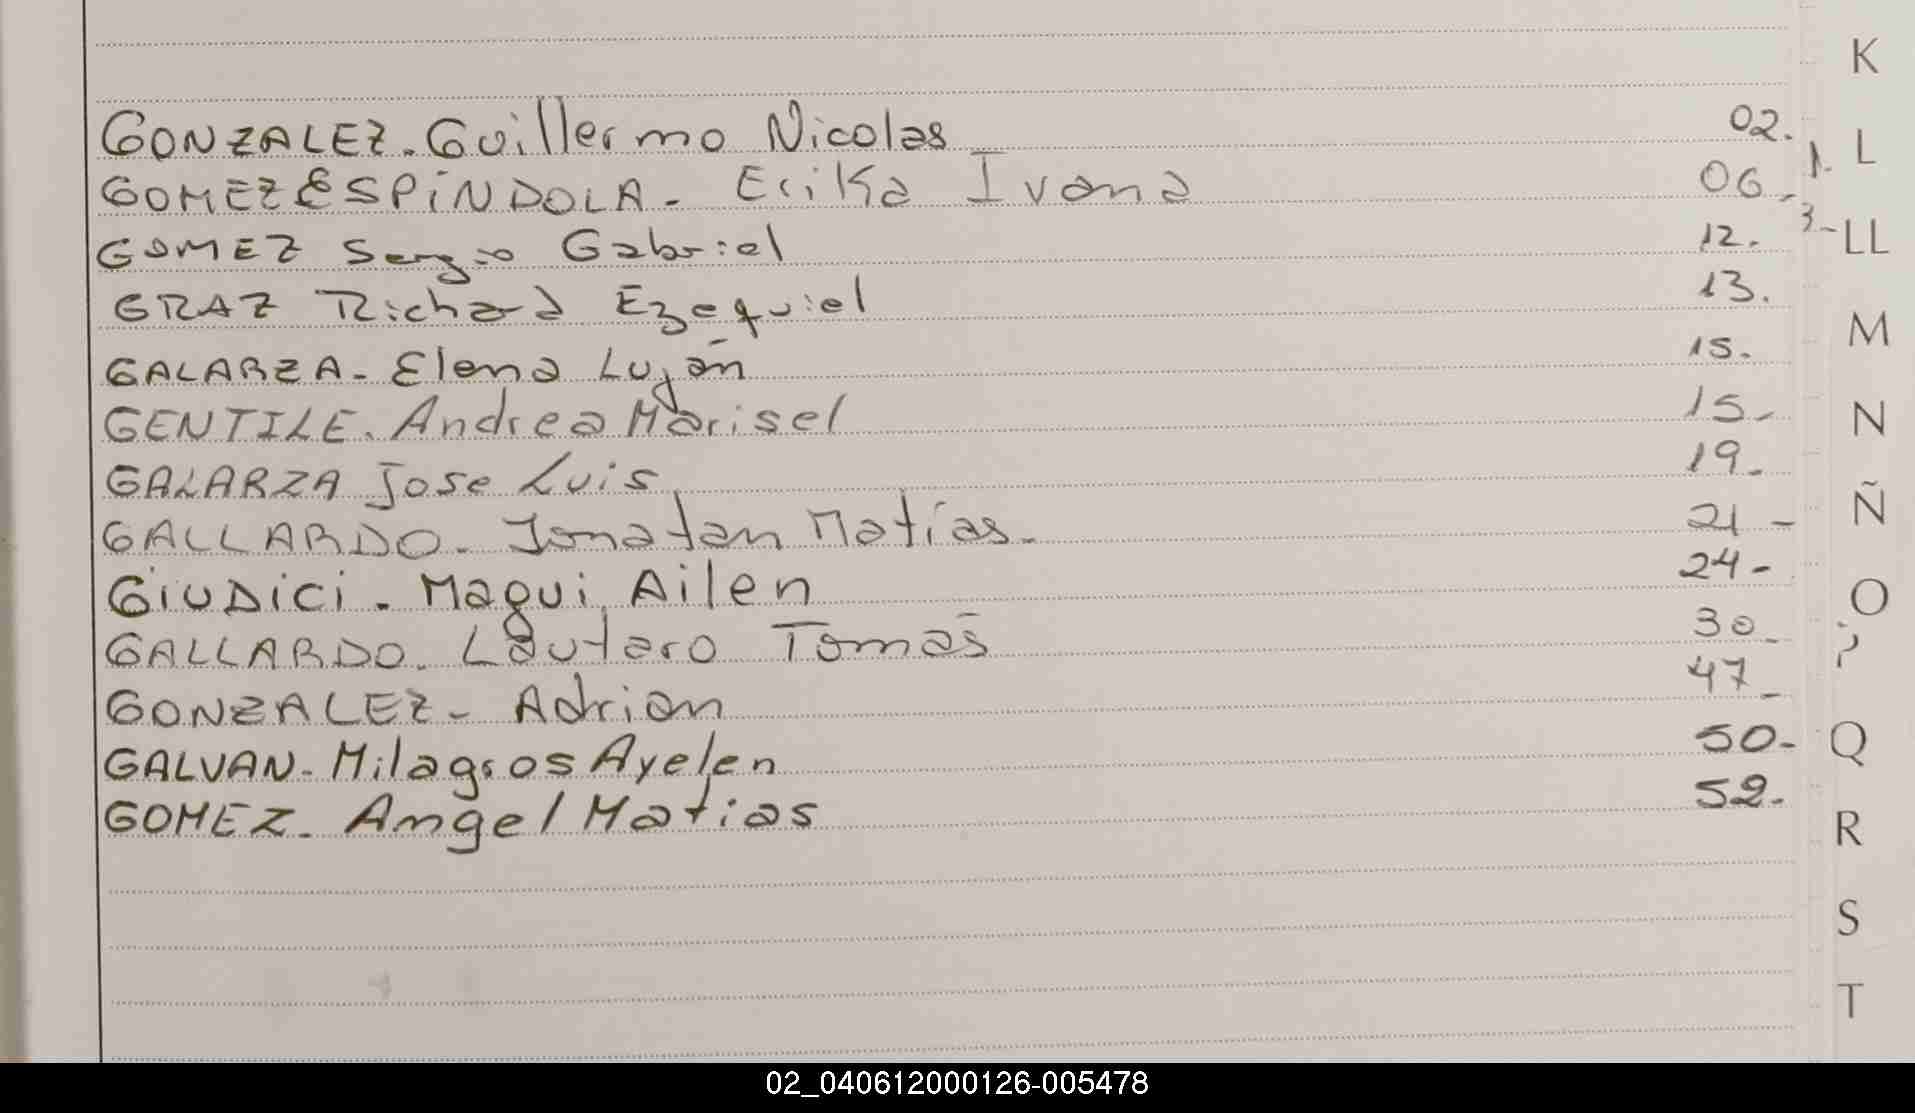 K
GONZALEZ. Guillermo Nicolas 02.
L
GOMEZ ESPÍNDOLA - Erika Ivana 06-
GOMEZ Sergio Gabriel 12.
LL
GRAZ Richard Ezequiel 13.
M
GALARZA - Elena Luján 15.
GENTILE. Andrea Marisel 15-
N
GALARZA Jose Luis 19-
GALLARDO - Jonatan Matías - 21 -
Ñ
GIUDICI - Magui Ailen 24-
O
GALLARDO. Lautaro Tomás 30-
GONZALEZ - Adrian 47-
GALVAN - Milagros Ayelen 50-
Q
GOMEZ - Angel Matias 52.
R
S
T
02_040612000126-005478